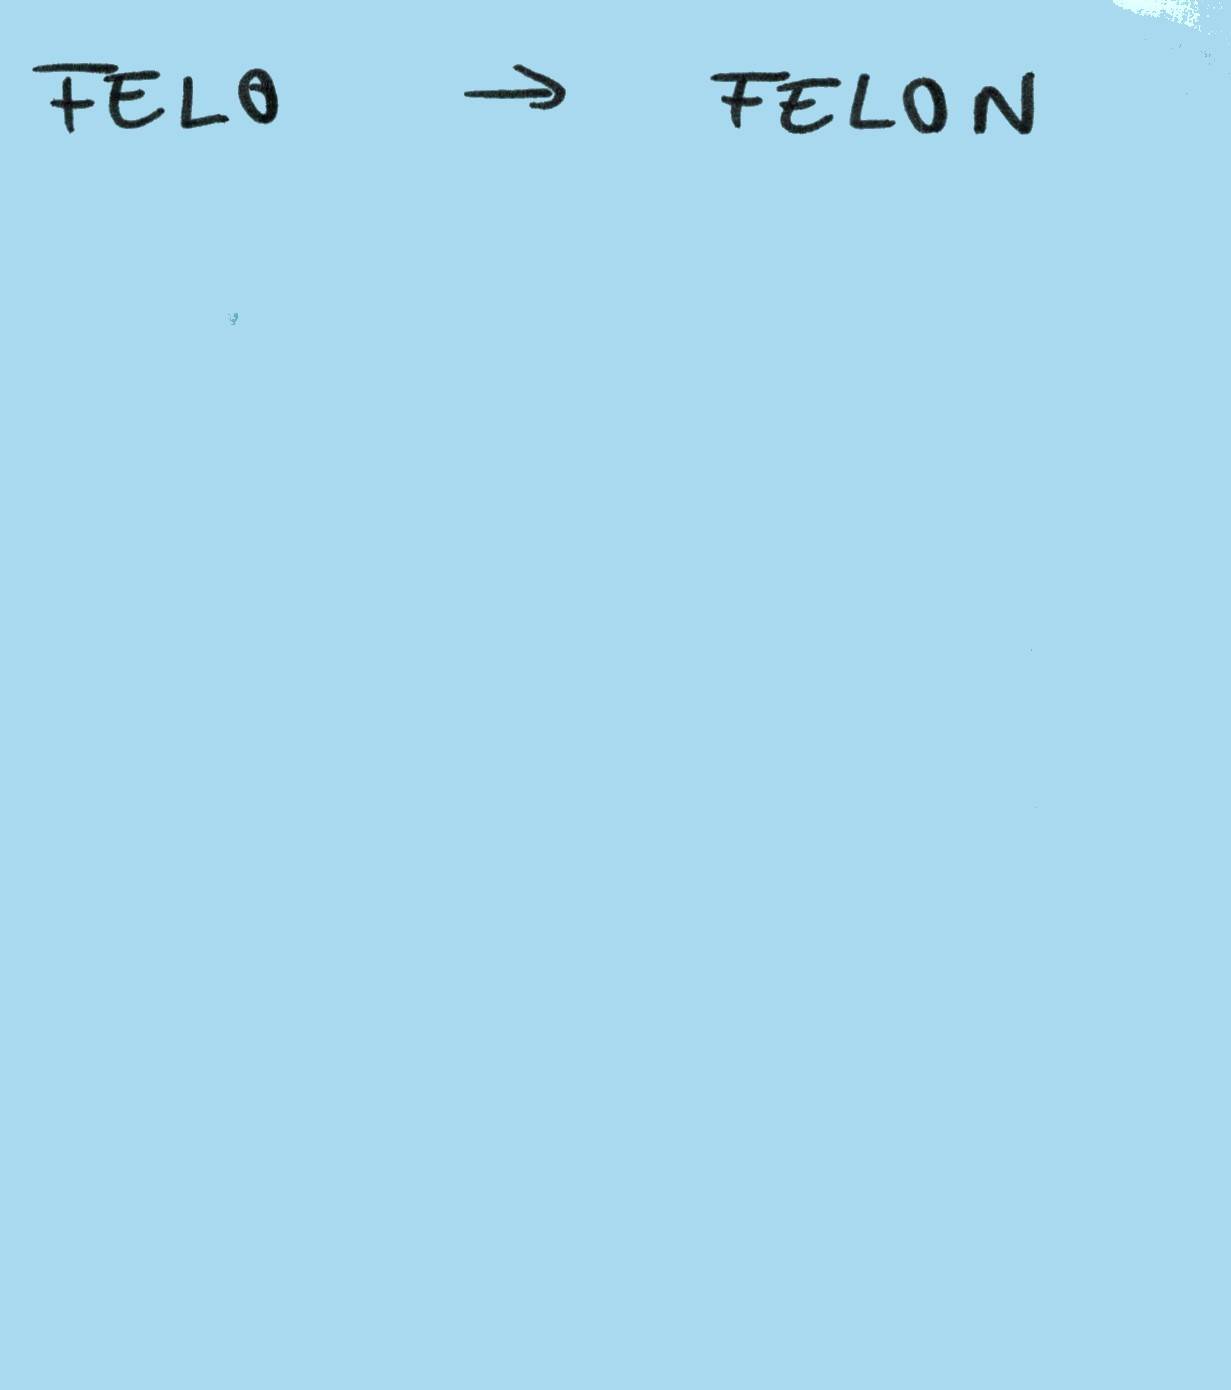 FELO → FELON